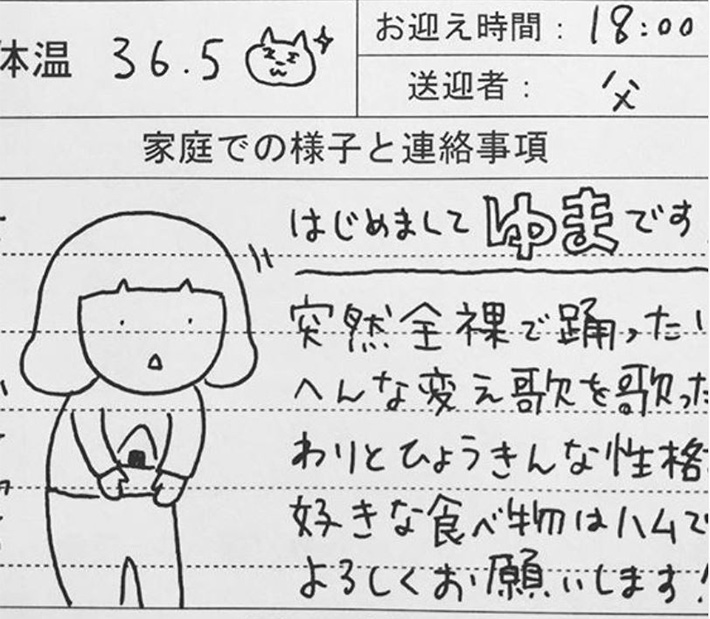 体温 36.5
お迎え時間： 18:00
送迎者： 父
家庭での様子と連絡事項
はじめまして ゆま です
突然全裸で踊ったり
へんな変え歌を歌った
わりとひょうきんな性格
好きな食べ物はハムで
よろしくお願いします!